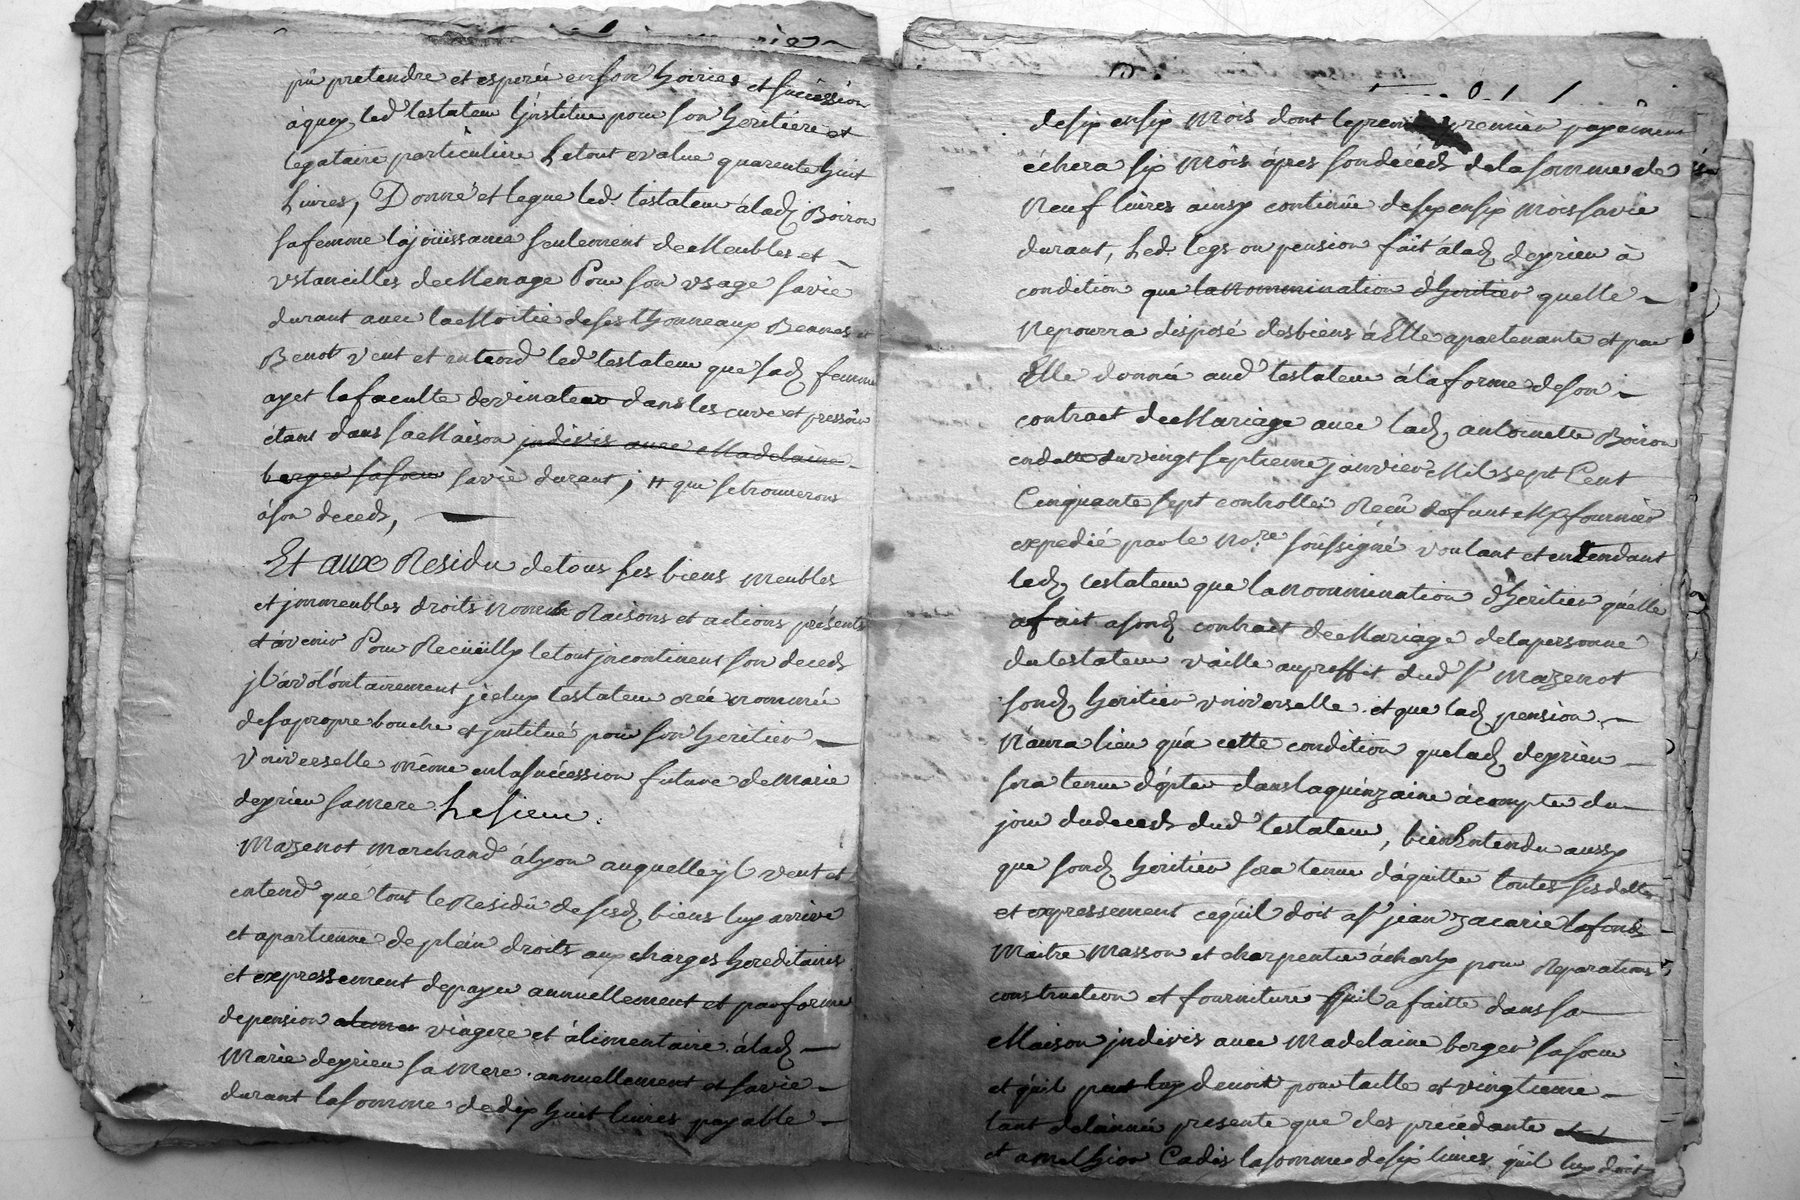 pû pretendre et esperé en son hoiries et sucession
àquoy led testateur l'institue pour son heritiere et
legataire particuliere le tout evalue quarente huit
Livres, Donne et legue led testateur à lad Boiron
sa femme la joüissance seulement de Meubles et
ustancilles de Menage Pour son usage sa vie
durant avec la Moitié de ses thonneaux Bennes et
Benot veut et entend led testateur que sad femme
ayet la faculte de vinater dans les cuve et pressoir
étant dans sa Maison jndivis avec Madelaine
berger sa sœur sa vie durant, # que se trouverons
à son deceds,
Et aux Residu de tous ses biens meubles
et jmmeubles droits noms Raisons et actions présents
et àvenir Pour Recüeilly le tout jncontinent son deceds
jl à volontairement jceluy testateur créé nommé
de sa propre bouche et jnstitué pour son heritier
Universelle même en la sucession future de Marie
deyrieu sa mere Le sieur
Mazenot marchand à lyon auquelle jl veut et
entend que tout le Residû de sesd biens luy arrive
et apartienne de plein droits aux charges hereditaires
et expressement de payer annuellement et par forme
de pension viagere et àlimentaire à lad
Marie deyrieu sa mere annuellement et sa vie
durant la somme de dix huit livres payable
de six en six mois dont le premier payement
échera six mois àpres son decéds de la somme de
Neuf livres ainsy continüe de six en six mois sa vie
durant, Led legs ou pension fait à lad deyrieu à
condition que la nommination d'heritier quelle
Ne pourra disposé des biens à Elle apartenante et par
Elle donné aud testateur à la forme de son
contract de Mariage avec lad antoinette Boiron
en datte du vingt septieme janvier Mil sept Cent
Cinquante sept controllé Recû defunt Me fournier
expedié par le No.re soussigné voulant et entendant
led testateur que la nommination d'heritier qu'elle
a fait a sond contract de Mariage de la personne
du testateur vaille au proffit dud Sr Mazenot
sond heritier universelle et que lad pension
N'aura lieu qu'a cette condition que lad deyrieu
sera tenue d'opter dans la quinzaine à compter du
jour du deceds dud testateur, bien Entendu aussy
que sond heritier sera tenue d'aquitter toutes ses dettes
et expressement ce qu'il doit a Sr jean zacarie lafond
Maitre Masson et charpentier à charly pour Reparations
construction et fourniture qu'il a faitte dans sa
Maison jndivis avec Madelaine berger sa sœur
et qu'il peut luy devoir pour taille et vingtieme
tant de l'année presente que des précédante
et a melhior Cadis la somme de six livres qu'il luy doit